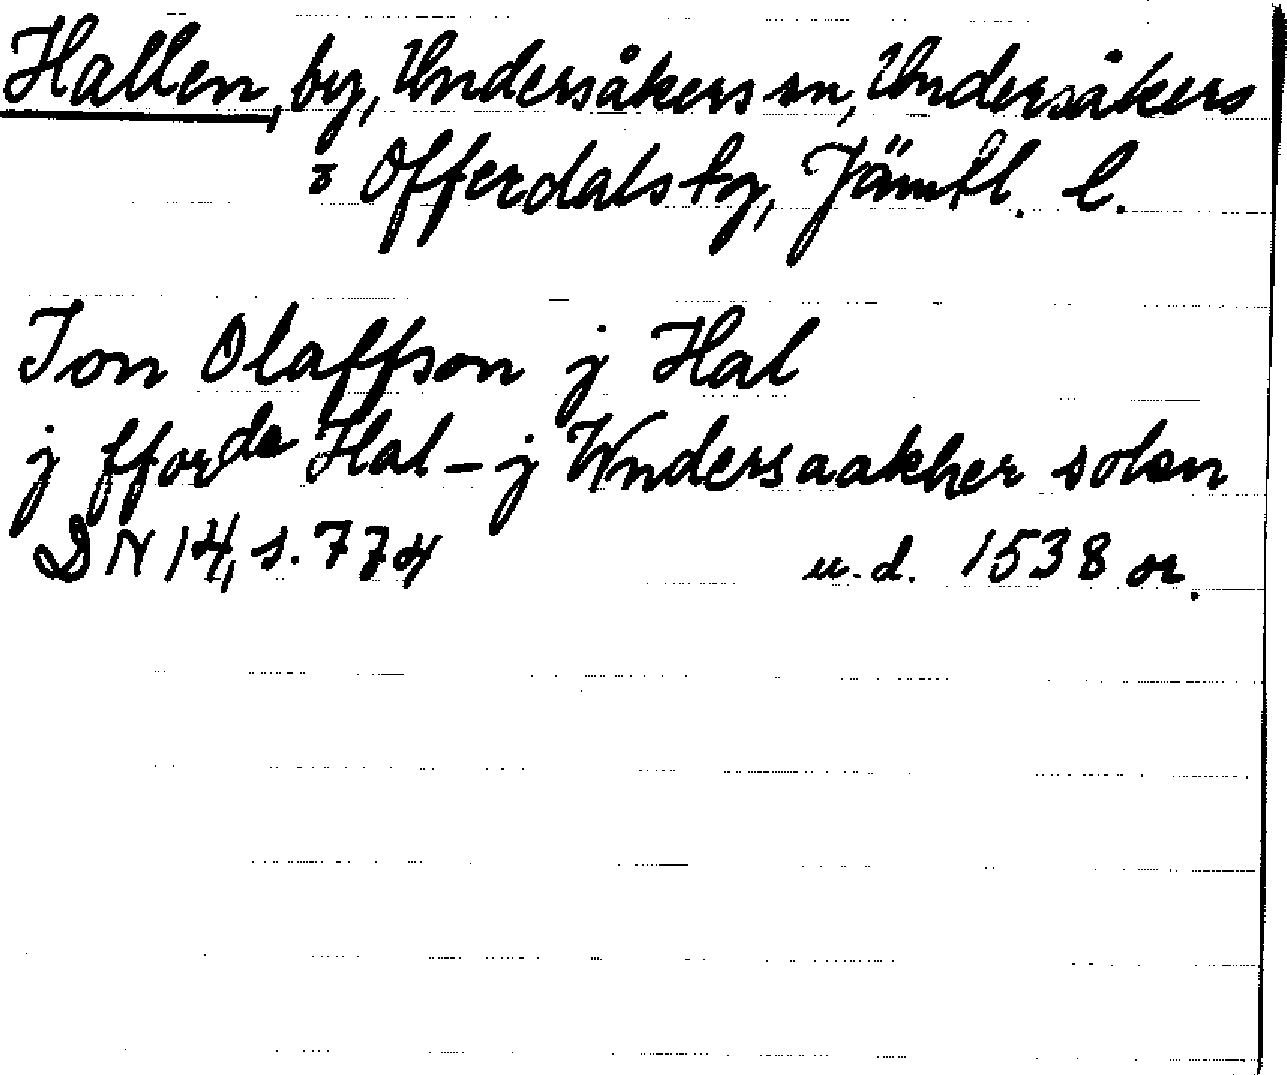 Hallen, by, Undersåkers sn, Undersåkers
o Offerdals tg, Jämtl. l.
Jon Olaffson j Hal
j fforde Hal - j Wndersaakher sokn
DN 14, s. 774 u.d. 1538 or.